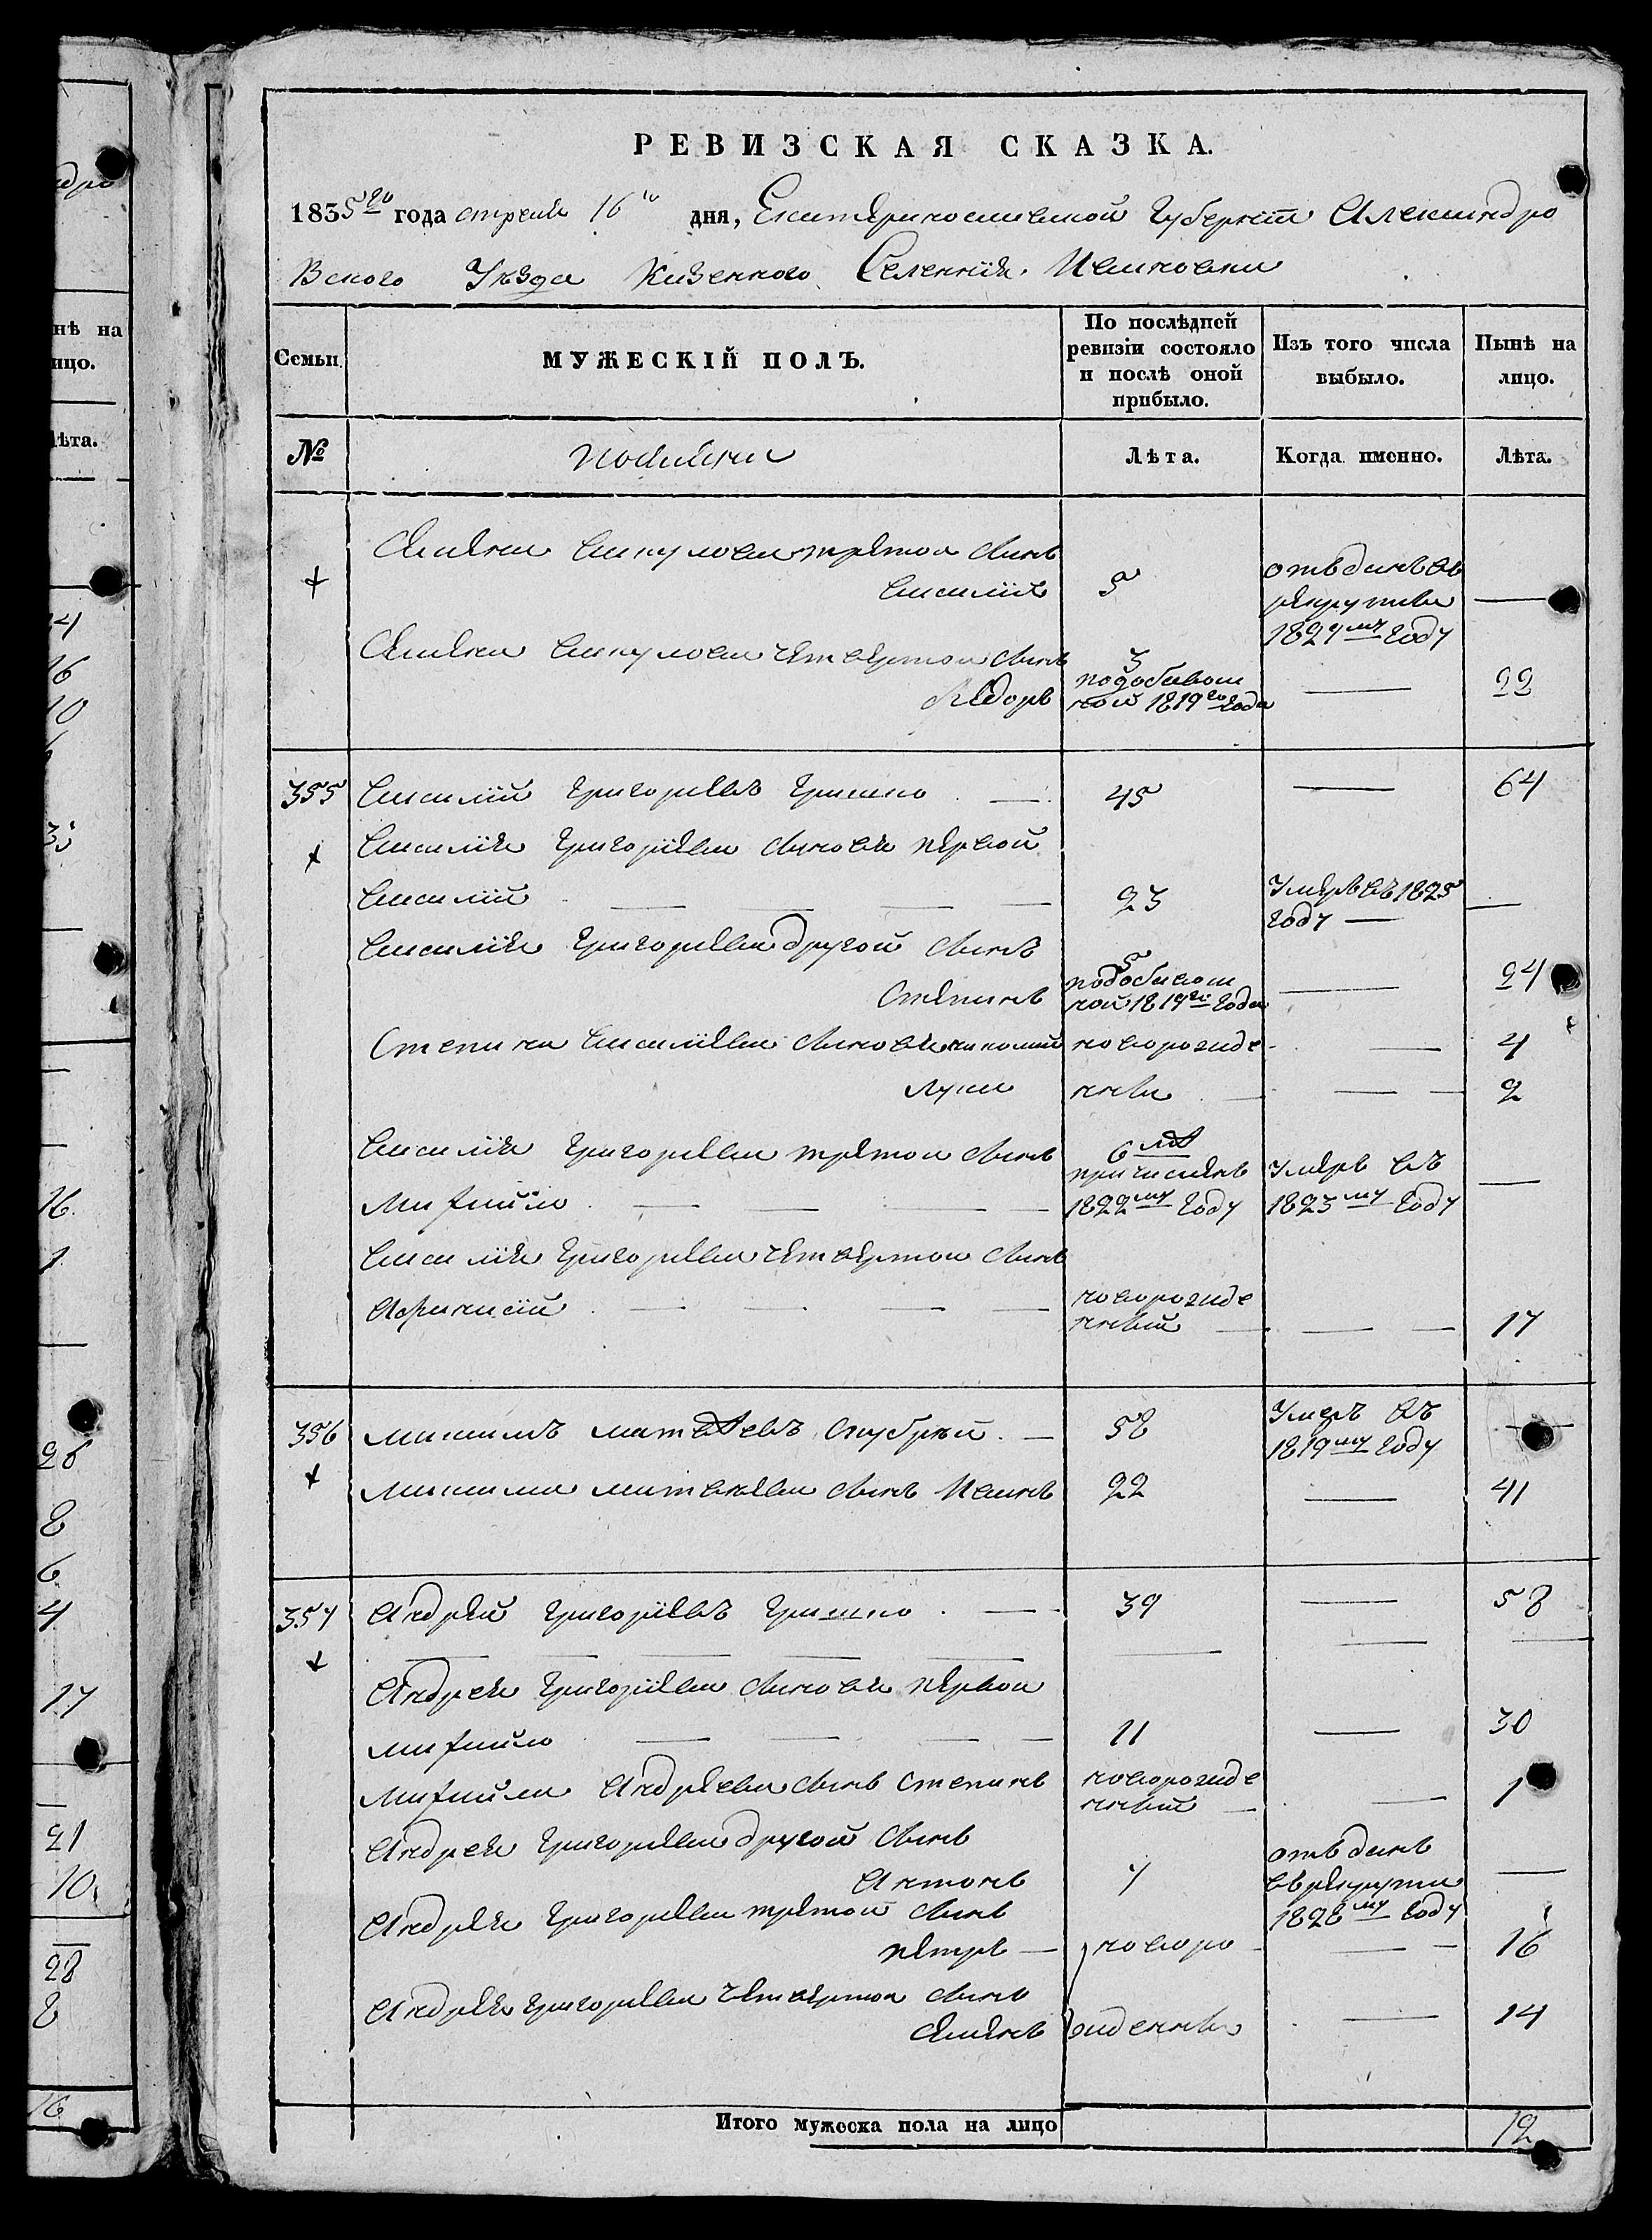 РЕВИЗСКАЯ СКАЗКА.
1835го года апреля 16го дня, Екатериносшавской Губернiи Александро
Вского Уѣзда Казенного Селенiя Ивановки
Семьи
МУЖЕСКIЙ ПОЛЪ.
По послѣдней ревизiи состояло и послѣ оной прибыло.
Изъ того числа выбыло.
Нынѣ на лицо.
№
Лѣта.
Когда именно.
Лѣта.
Семена Вакулова третои Сынъ
Василiй 5 отъданъ въ рекруты 1827му Году —
Семена Вакулова Четвертои Сынъ
Федоръ 3 подобавочной 1819го Года — 22
355 Василiй Григорiевъ Гришко 45 — 64
Василiя Григорiева Сыновя первой
Василiй 23 Умеръ въ 1825 году —
Василiя Григорiева другой Сынъ
Степанъ 5 подобавочной 1819го Года — 24
Степана Василiева Сыновя николай новорожде — 4
Лука нны — 2
Василiя Григорiева третои Сынъ
Михайло 6 лѣт причисленъ 1822му Году Умеръ въ 1823му Году —
Василiя Григорiева Четвертои Сынъ
Афанасiй новорожденный — 17
356 Максимъ Матвѣевъ Скубрѣй 58 Умеръ въ 1819му Году
Максима Матвѣева Сынъ Иванъ 22 — 41
357 Андрей Григорiевъ Гришко 39 — 58
Андрея Григорiева Сыновя первои
Михайло 11 — 30
Михайла Андреева Сынъ Степанъ новорожденный — 1
Андрея Григорiева другой Сынъ
Антонъ 7 отъданъ въ рекруты 1828му Году —
Андрея Григорiева третой Сынъ
Петръ — новоро — 16
Андрея Григорiева Четвертои Сынъ
Семенъ жденны — 14
Итого мужеска пола на лицо 12